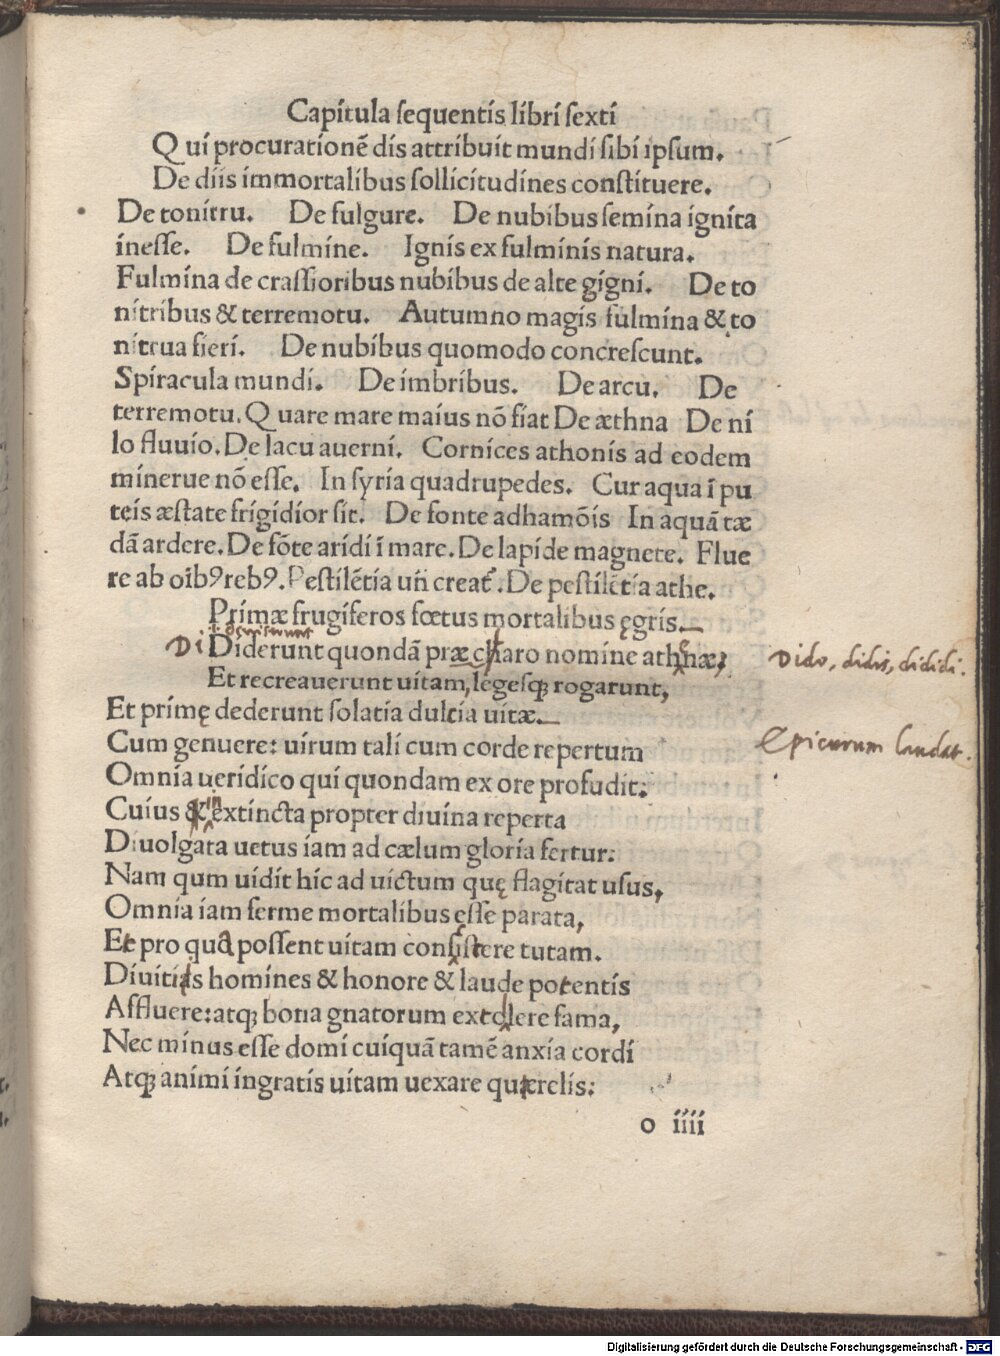 Capitula sequentis libri sexti
Qui procurationē dis attribuit mundi sibi ipsum.
De diis immortalibus sollicitudines constituere.
De tonitru. De fulgure. De nubibus semina ignita
inesse. De fulmine. Ignis ex fulminis natura.
Fulmina de crassioribus nubibus de alte gigni. De to
nitribus & terremotu. Autumno magis fulmina & to
nitrua fieri. De nubibus quomodo concrescunt.
Spiracula mundi. De imbribus. De arcu. De
terremotu. Quare mare maius nō fiat De æthna De ni
lo fluuio. De lacu auerni. Cornices athonis ad eodem
minerue nō esse. In syria quadrupedes. Cur aqua ī pu
teis æstate frigidior sit. De fonte adhamōis In aquā tæ
dā ardere. De fōte aridi ī mare. De lapide magnete. Flue
re ab oīb9 reb9. Pestilētia uñ creat᷑. De pestilētia athe.
Primæ frugiferos fœtus mortalibus ęgris.
Di Diderunt quondā præ charo nomine athnæ, Dido, didis, dididi.
Et recreauerunt uitam, legesqꝫ rogarunt,
Et primę dederunt solatia dulcia uitæ.
Cum genuere: uirum tali cum corde repertum Epicurum laudat.
Omnia ueridico qui quondam ex ore profudit:
Cuius & in extincta propter diuina reperta
Diuolgata uetus iam ad cælum gloria fertur:
Nam qum uidit hic ad uictum quę flagitat usus,
Omnia iam ferme mortalibus esse parata,
Et pro quā possent uitam consistere tutam.
Diuitias homines & honore & laude potentis
Affluere: atqꝫ bona gnatorum excellere fama,
Nec minus esse domi cuiquā tamē anxia cordi
Atqꝫ animi ingratis uitam uexare quærelis:
o iiii
Digitalisierung gefördert durch die Deutsche Forschungsgemeinschaft - DFG